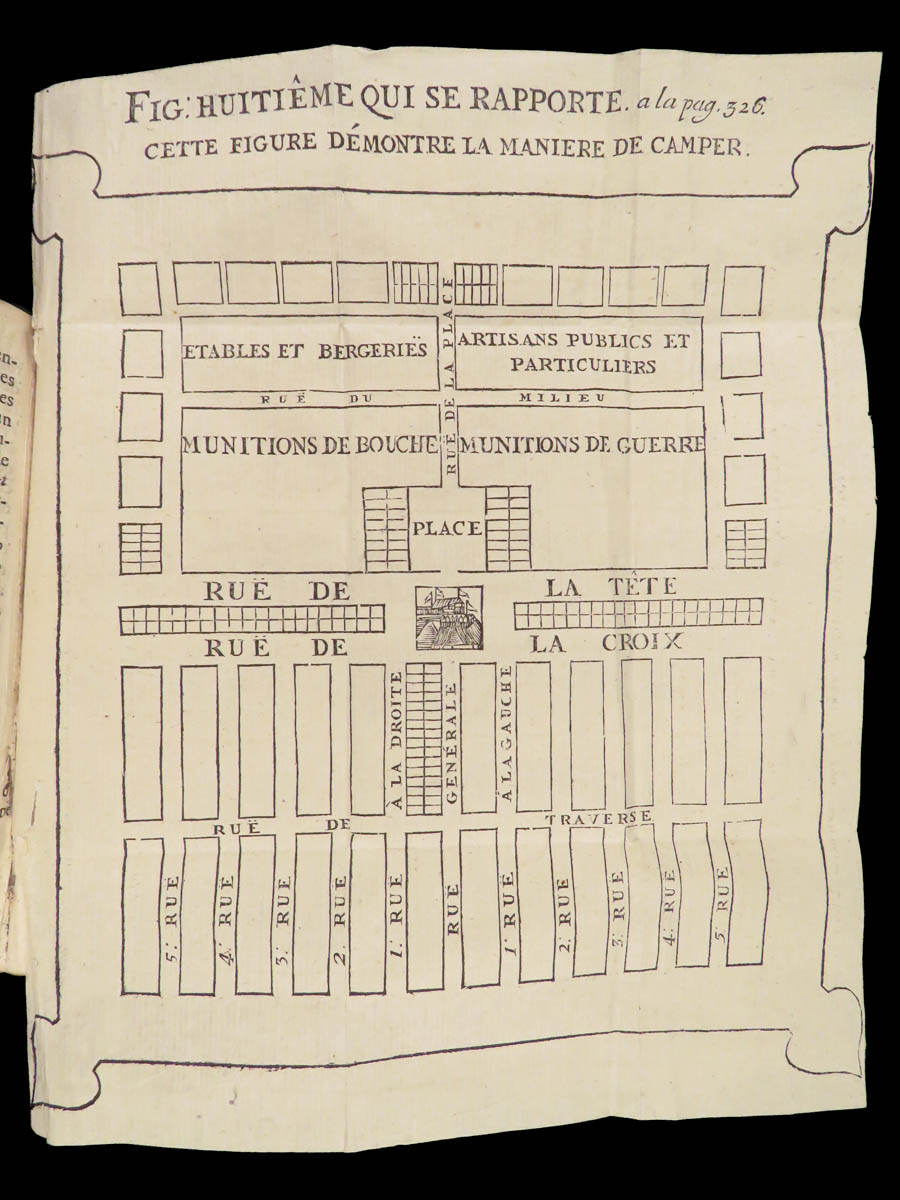 FIG: HUITIÊME QUI SE RAPPORTE. a la pag. 326.
CETTE FIGURE DÉMONTRE LA MANIERE DE CAMPER.
ETABLES ET BERGERIËS
ARTISANS PUBLICS ET
PARTICULIERS
RUË DU MILIEU
RUË DE LA PLACE
MUNITIONS DE BOUCHE
MUNITIONS DE GUERRE
PLACE
RUË DE LA TÊTE
RUË DE LA CROIX
À LA DROITE
GENÉRALE
À LA GAUCHE
RUË DE TRAVERSE
5: RUË
4: RUË
3: RUË
2: RUË
1: RUË
RUË
1: RUË
2: RUË
3: RUË
4: RUË
5: RUË